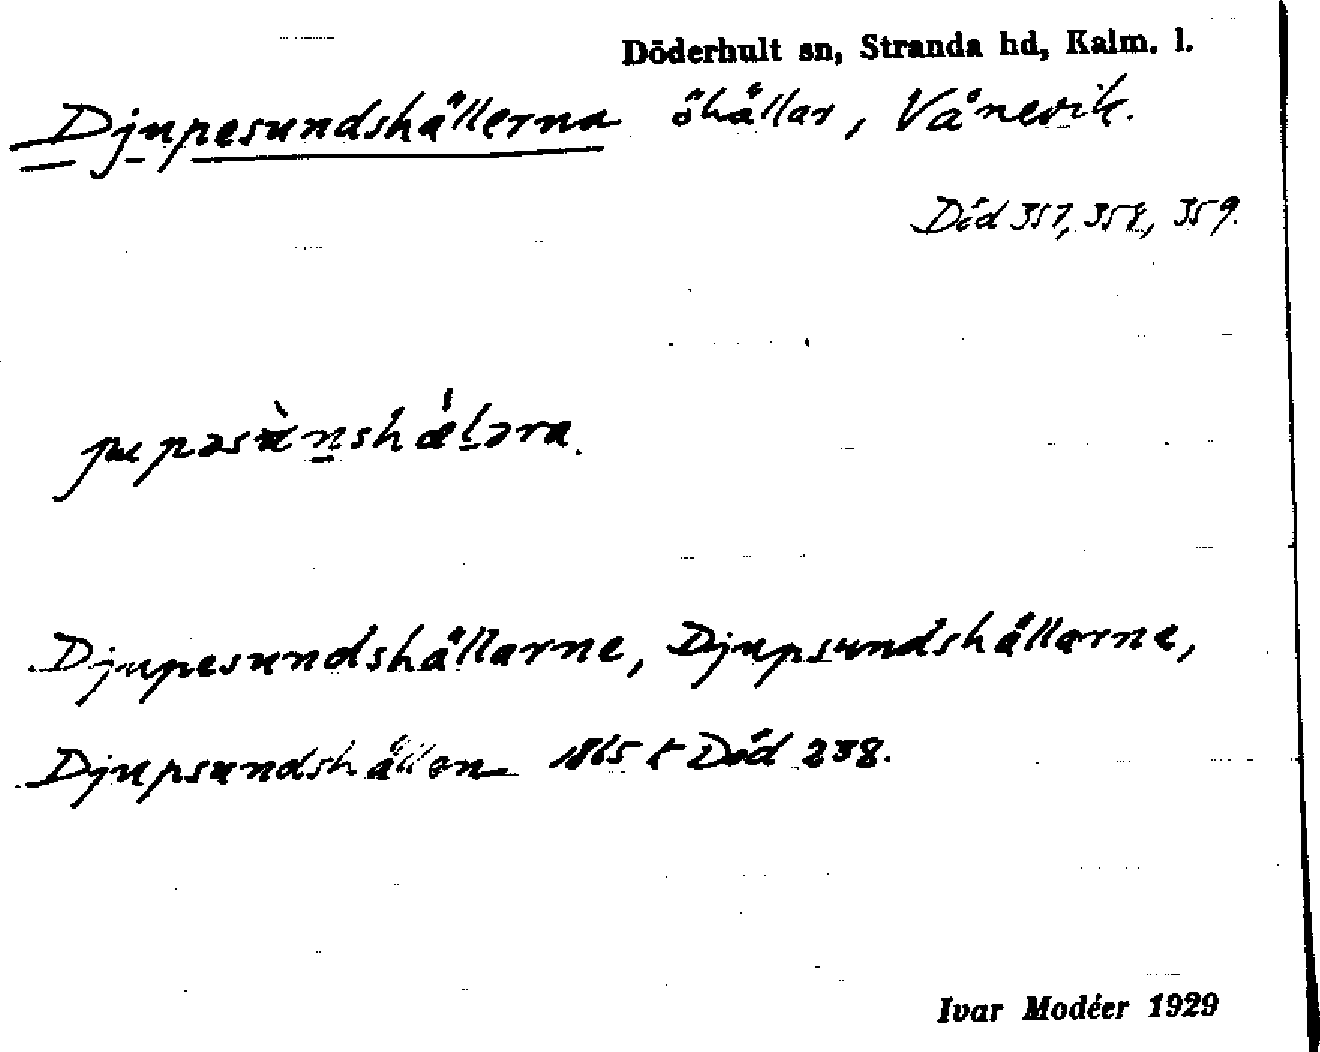 Döderhult sn, Stranda hd, Kalm. l.
Djupesundshällerna öhällar, Vånevik.
Död 357, 358, 359.
jupəsùnshǽləra.
Djupesundshällarne, Djupsundshällarne,
Djupsundshällen 1865 t Död 238.
Ivar Modéer 1929